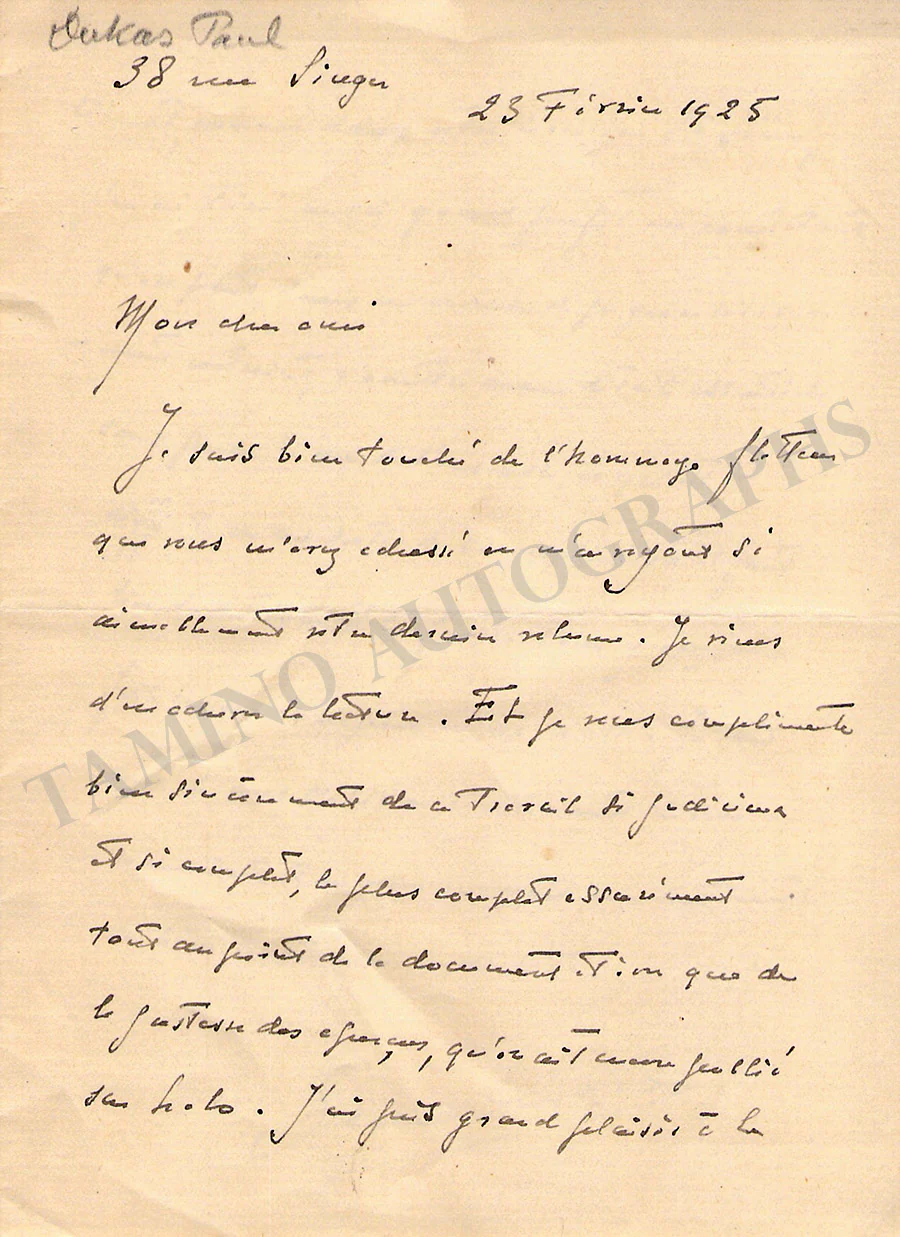 Dukas Paul
38 rue Singer
23 Février 1925
Mon cher ami
Je suis bien touché de l'hommage flatteur
que vous m'avez adressé en m'envoyant si
aimablement votre dernier volume. Je viens
d'en achever la lecture. Et je vous complimente
bien sincèrement de ce travail si judicieux
et si complet, le plus complet assurément
tant au point de la documentation que de
la justesse des aperçus, qu'on ait encore publié
sur Lalo. J'ai pris grand plaisir à le
TAMINO AUTOGRAPHS